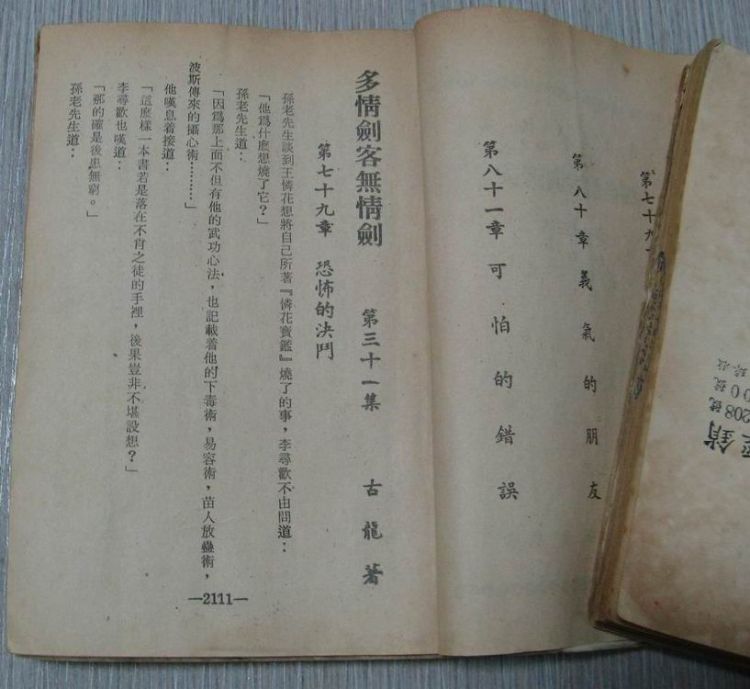 第七十九
第八十章 義氣的朋友
第八十一章 可怕的錯誤
多情劍客無情劍 第三十一集 古龍著
第七十九章 恐怖的決鬥
孫老先生談到王憐花想將自己所著『憐花寶鑑』燒了的事，李尋歡不由問道：
「他爲什麽想燒了它？」
孫老先生道：
「因爲那上面不但有他的武功心法，也記載着他的下毒術，易容術，苗人放蠱術，
波斯傳來的攝心術………」
他嘆息着接道：
「這麽樣一本書若是落在不肖之徒的手裡，後果豈非不堪設想？」
李尋歡也嘆道：
「那的確是後患無窮。」
孫老先生道：
—2111—
208號
銷